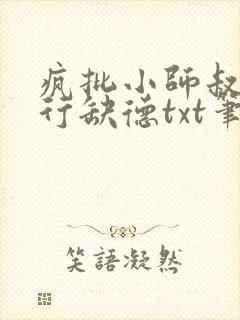 疯批小師叔
行缺德txt筆
笑語凝然